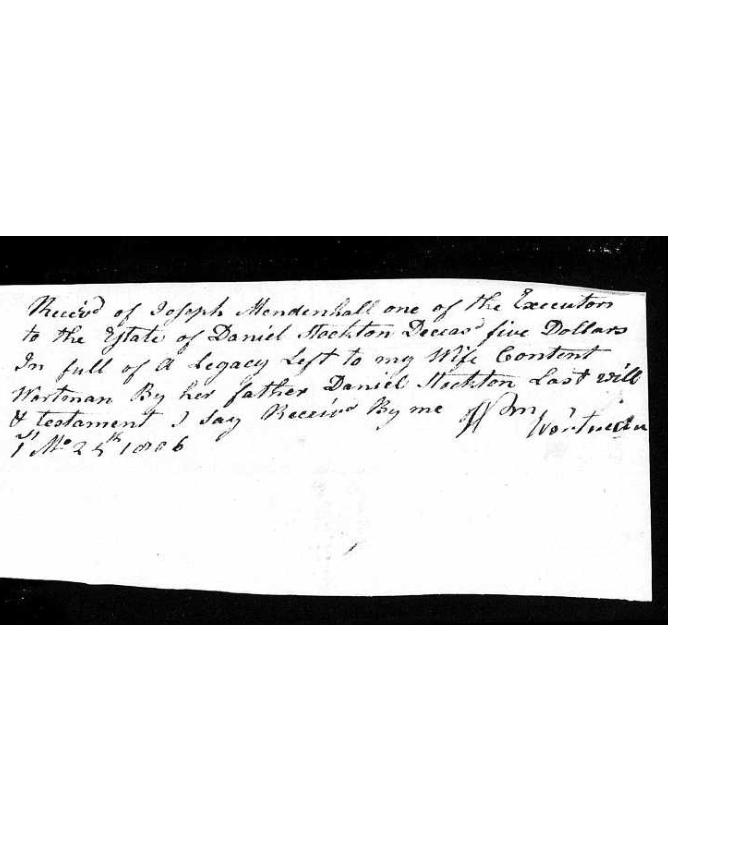 Receivd of Joseph Mendenhall one of the Executors
to the Estate of Daniel Stockton Deceasd five Dollars
In full of A Legacy Left to my Wife Content
Wortman By her father Daniel Stockton Last will
& testament I say Receivd By me Wm Wortman
1st Mo 25th 1806